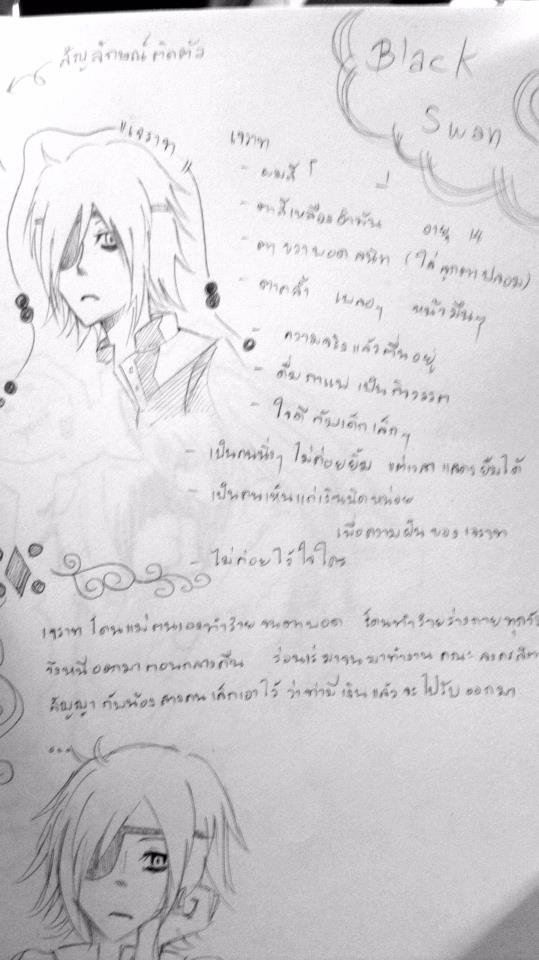 สัญลักษณ์ติดตัว
Black
Swan
"เจราท"
เจราท
- ผมสี
- ตาสีเหลืองอำพัน อายุ 14
- ตาขวาบอดสนิท (ใส่ลูกตาปลอม)
- ตาคล้ำ เบลอๆ หน้ามึนๆ
- ความจริงแล้วตื่นอยู่
- ดื่มกาแฟเป็นกิจวรรต
- ใจดีกับเด็กเล็กๆ
- เป็นคนนิ่งๆ ไม่ค่อยยิ้ม แต่เวลาแสดงยิ้มได้
- เป็นคนเห็นแก่เงินนิดหน่อย
เพื่อความฝันของเจราท
- ไม่ค่อยไว้ใจใคร
เจราทโดนแม่ตนเองทำร้ายจนตาบอด โดนทำร้ายร่างกายทุกวัน
จึงหนีออกมาตอนกลางคืน ร่อนเร่มาจนมาทำงานคณะละครสัตว์
สัญญากับน้องสาวคนเล็กเอาไว้ว่าถ้ามีเงินแล้วจะไปรับออกมา
...